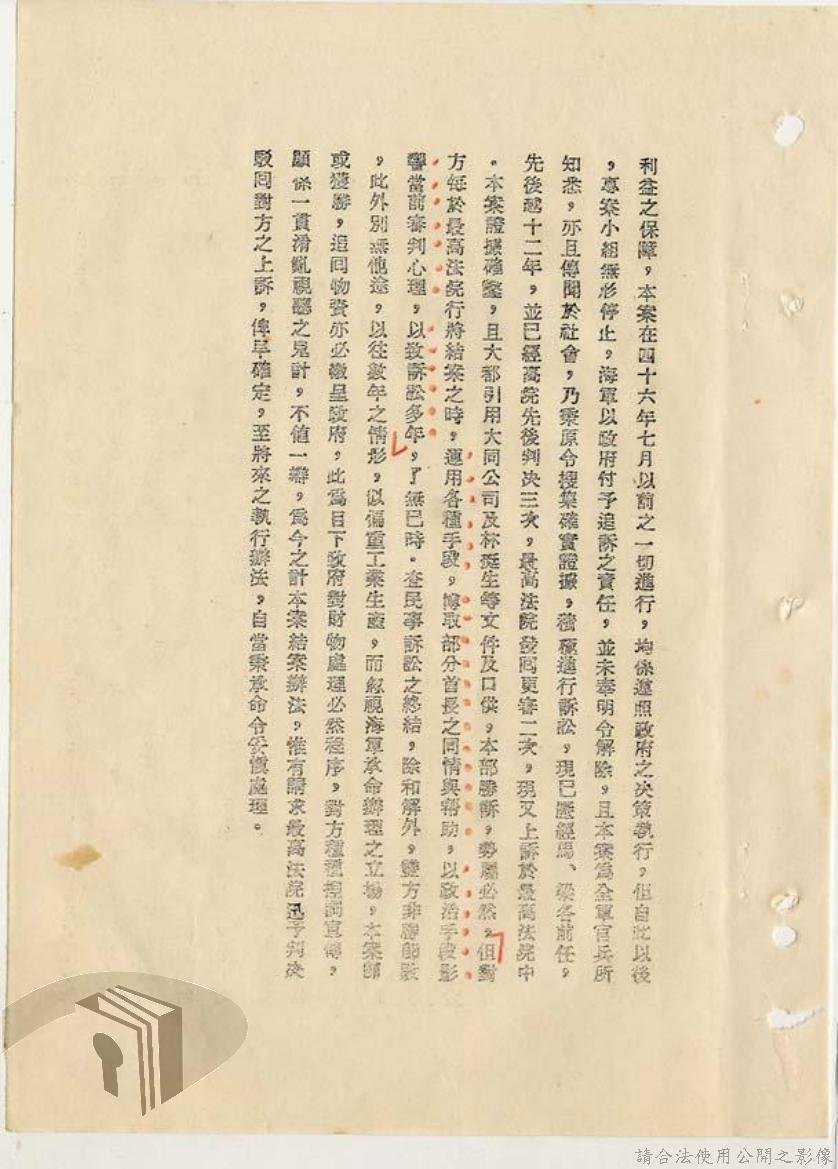 利益之保障，本案在四十六年七月以前之一切進行，均係遵照政府之決策執行，但自此以後
，專案小組無形停止，海軍以政府付予追訴之責任，並未奉明令解除，且本案為全軍官兵所
知悉，亦且傳聞於社會，乃秉原令搜集確實證據，積極進行訴訟，現已歷經馬、梁各前任，
先後越十二年，並已經高院先後判決三次，最高法院發回更審二次，現又上訴於最高法院中
。本案證據確鑿，且大都引用大同公司及林挺生等文件及口供，本部勝訴，勢屬必然，但對
方每於最高法院行將結案之時，運用各種手段，博取部分首長之同情與幫助，以政治手段影
響當前審判心理，以致訴訟多年，了無已時。查民事訴訟之終結，除和解外，雙方非勝即敗
，此外別無他途，以往數年之情形，似偏重工業生產，而忽視海軍承命辦理之立場，本案即
或獲勝，追回物資亦必繳呈政府，此為目下政府對財物處理必然程序，對方種種控詞宣傳，
顯係一貫淆亂視聽之鬼計，不值一辯，為今之計本案結案辦法，惟有請求最高法院迅予判決
駁回對方之上訴，俾早確定，至將來之執行辦法，自當秉承命令妥慎處理。
請合法使用公開之影像